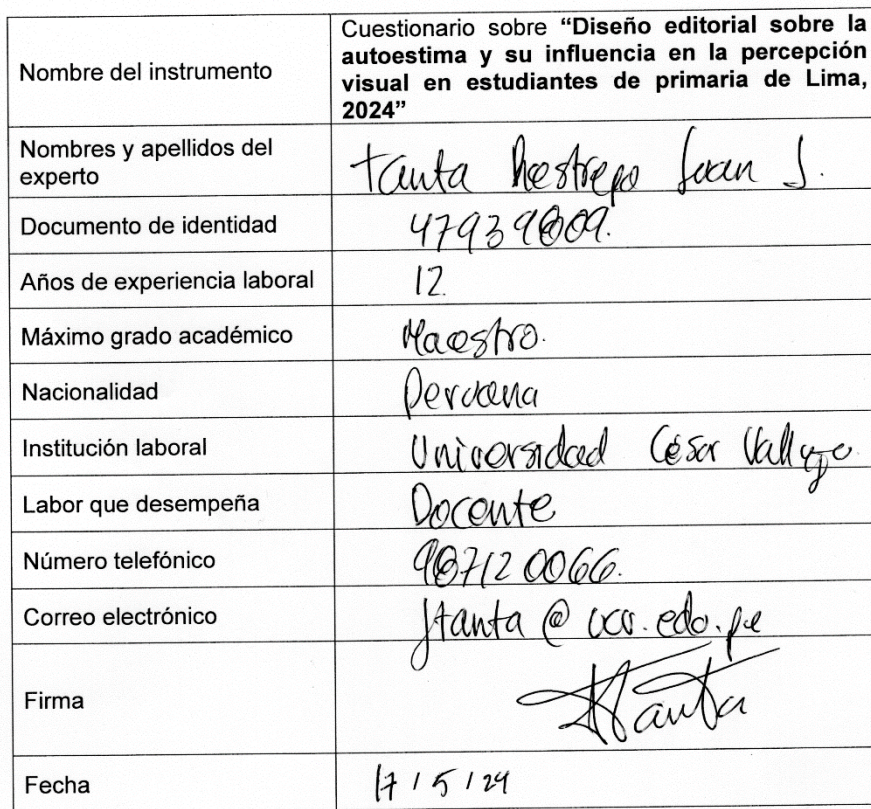 Nombre del instrumento
Cuestionario sobre “Diseño editorial sobre la
autoestima y su influencia en la percepción
visual en estudiantes de primaria de Lima,
2024”
Nombres y apellidos del
experto
Tanta Restrepo Juan J.
Documento de identidad
Años de experiencia laboral
12
Máximo grado académico
Maestro.
Nacionalidad
Peruana
Institución laboral
Universidad César Vallejo
Labor que desempeña
Docente
Número telefónico
Correo electrónico
jtanta@ucv.edu.pe
Firma
JTanta
Fecha
17/5/24